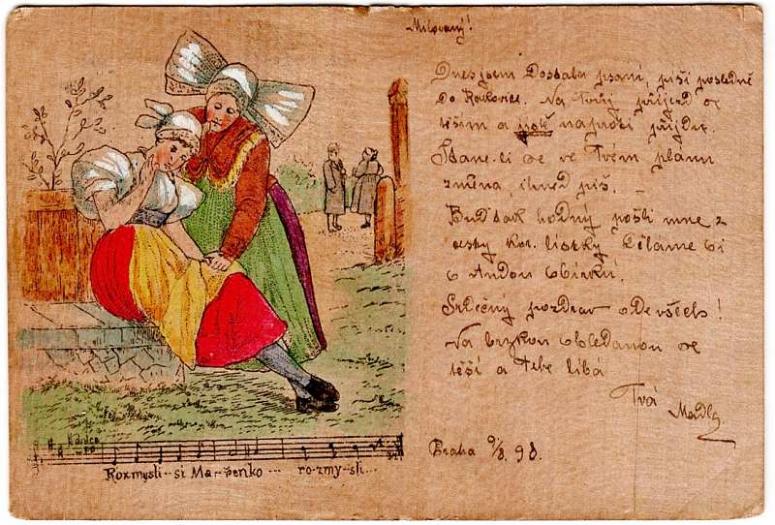 Milovaný!
Dnes jsem Dostala psaní, píši posledně
Do Rakovice. Na Tvůj příjezd se
těším a jistě naproti přijdu.
Stane-li se ve Tvém plánu
změna, ihned piš. –
Buď tak hodný pošli mne z
cesty kor. lístky Děláme si
s Andou sbírku.
Srdečný pozdrav ode všech!
Na brzkou shledanou se
těší a Tebe líbá
Tvá
Madla
Praha 9/8. 98.
Rozmysli-si Ma-řenko ... ro-zmy-sli...